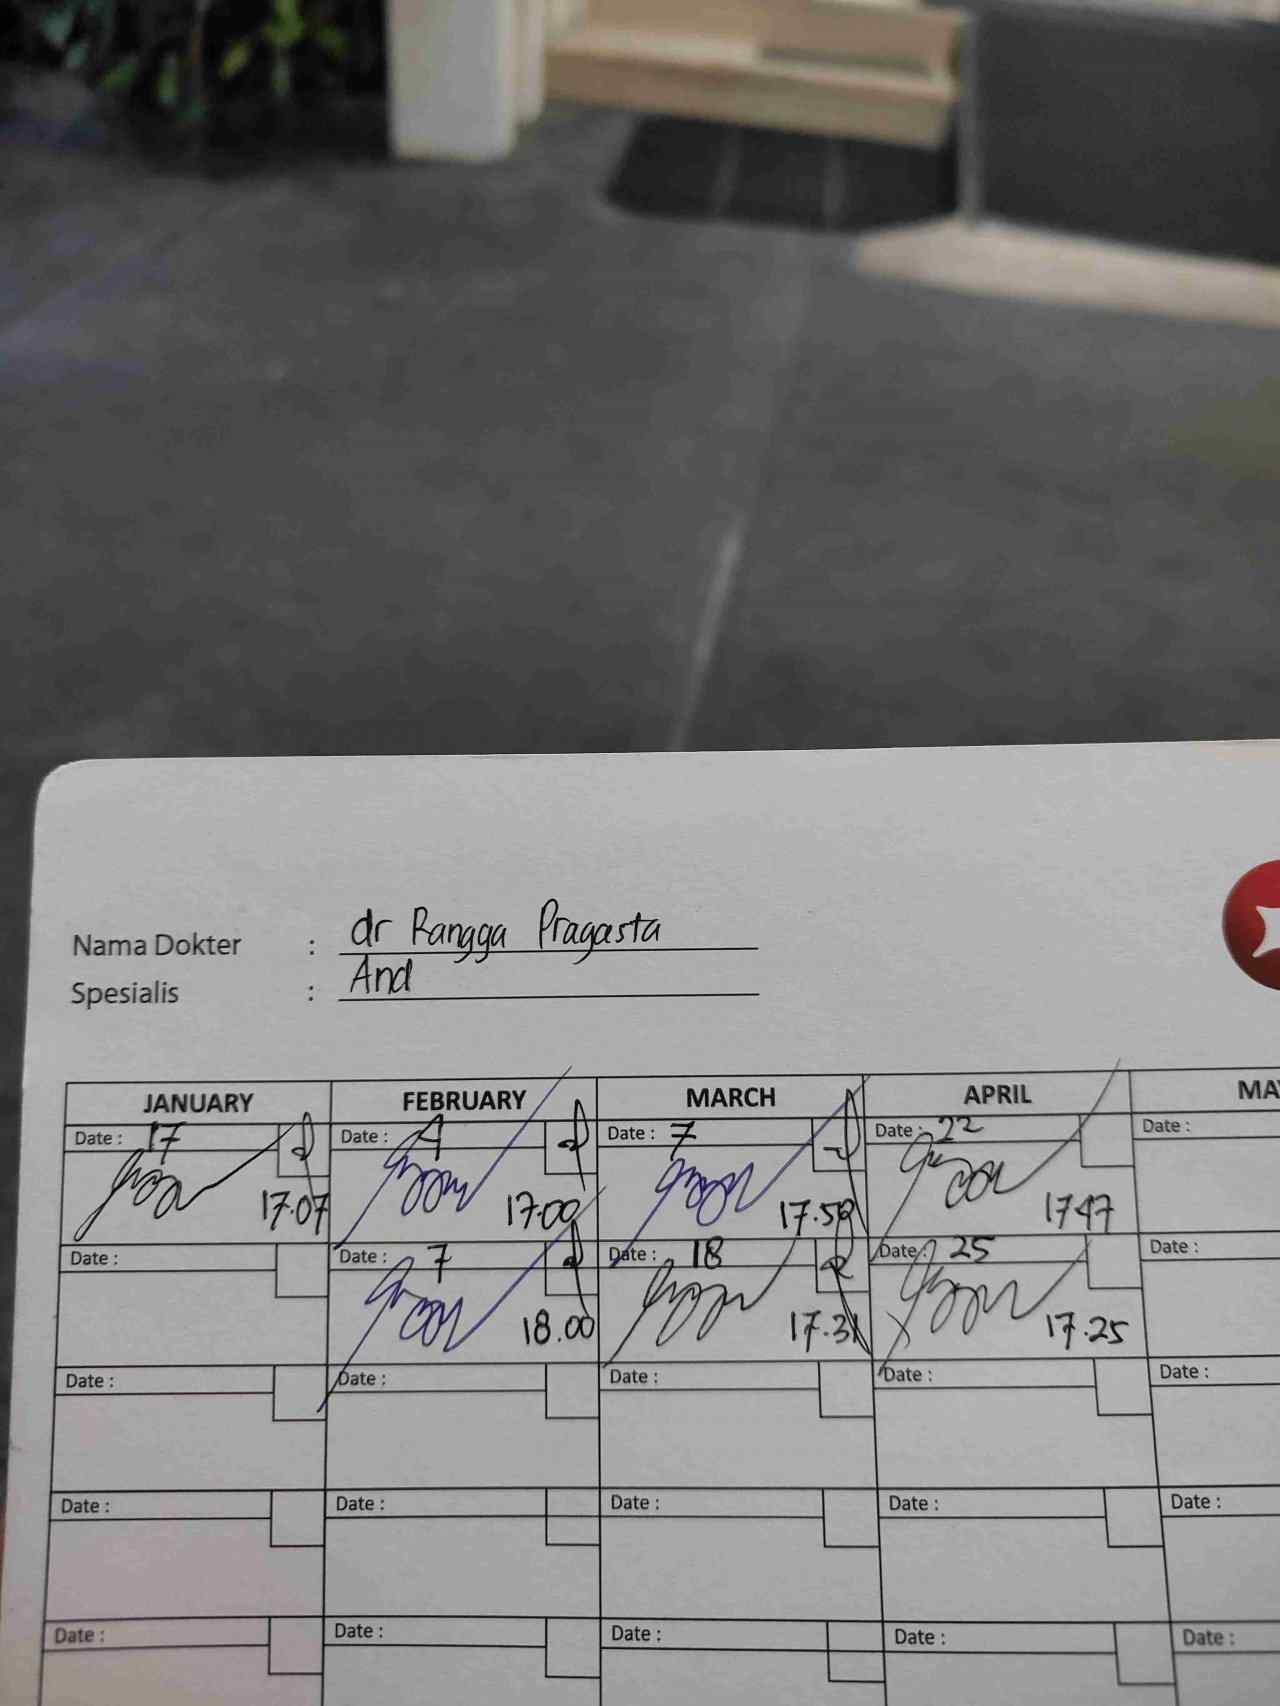 Nama Dokter : dr Rangga Pragasta
Spesialis : And
JANUARY FEBRUARY MARCH APRIL
Date : 17 Date : 4 Date : 7 Date : 22 Date :
17.07 17.00 17.58 1747
Date : Date : 7 Date : 18 Date : 25 Date :
18.00 17.31 17.25
Date : Date : Date : Date : Date :
Date : Date : Date : Date : Date :
Date : Date : Date : Date : Date :